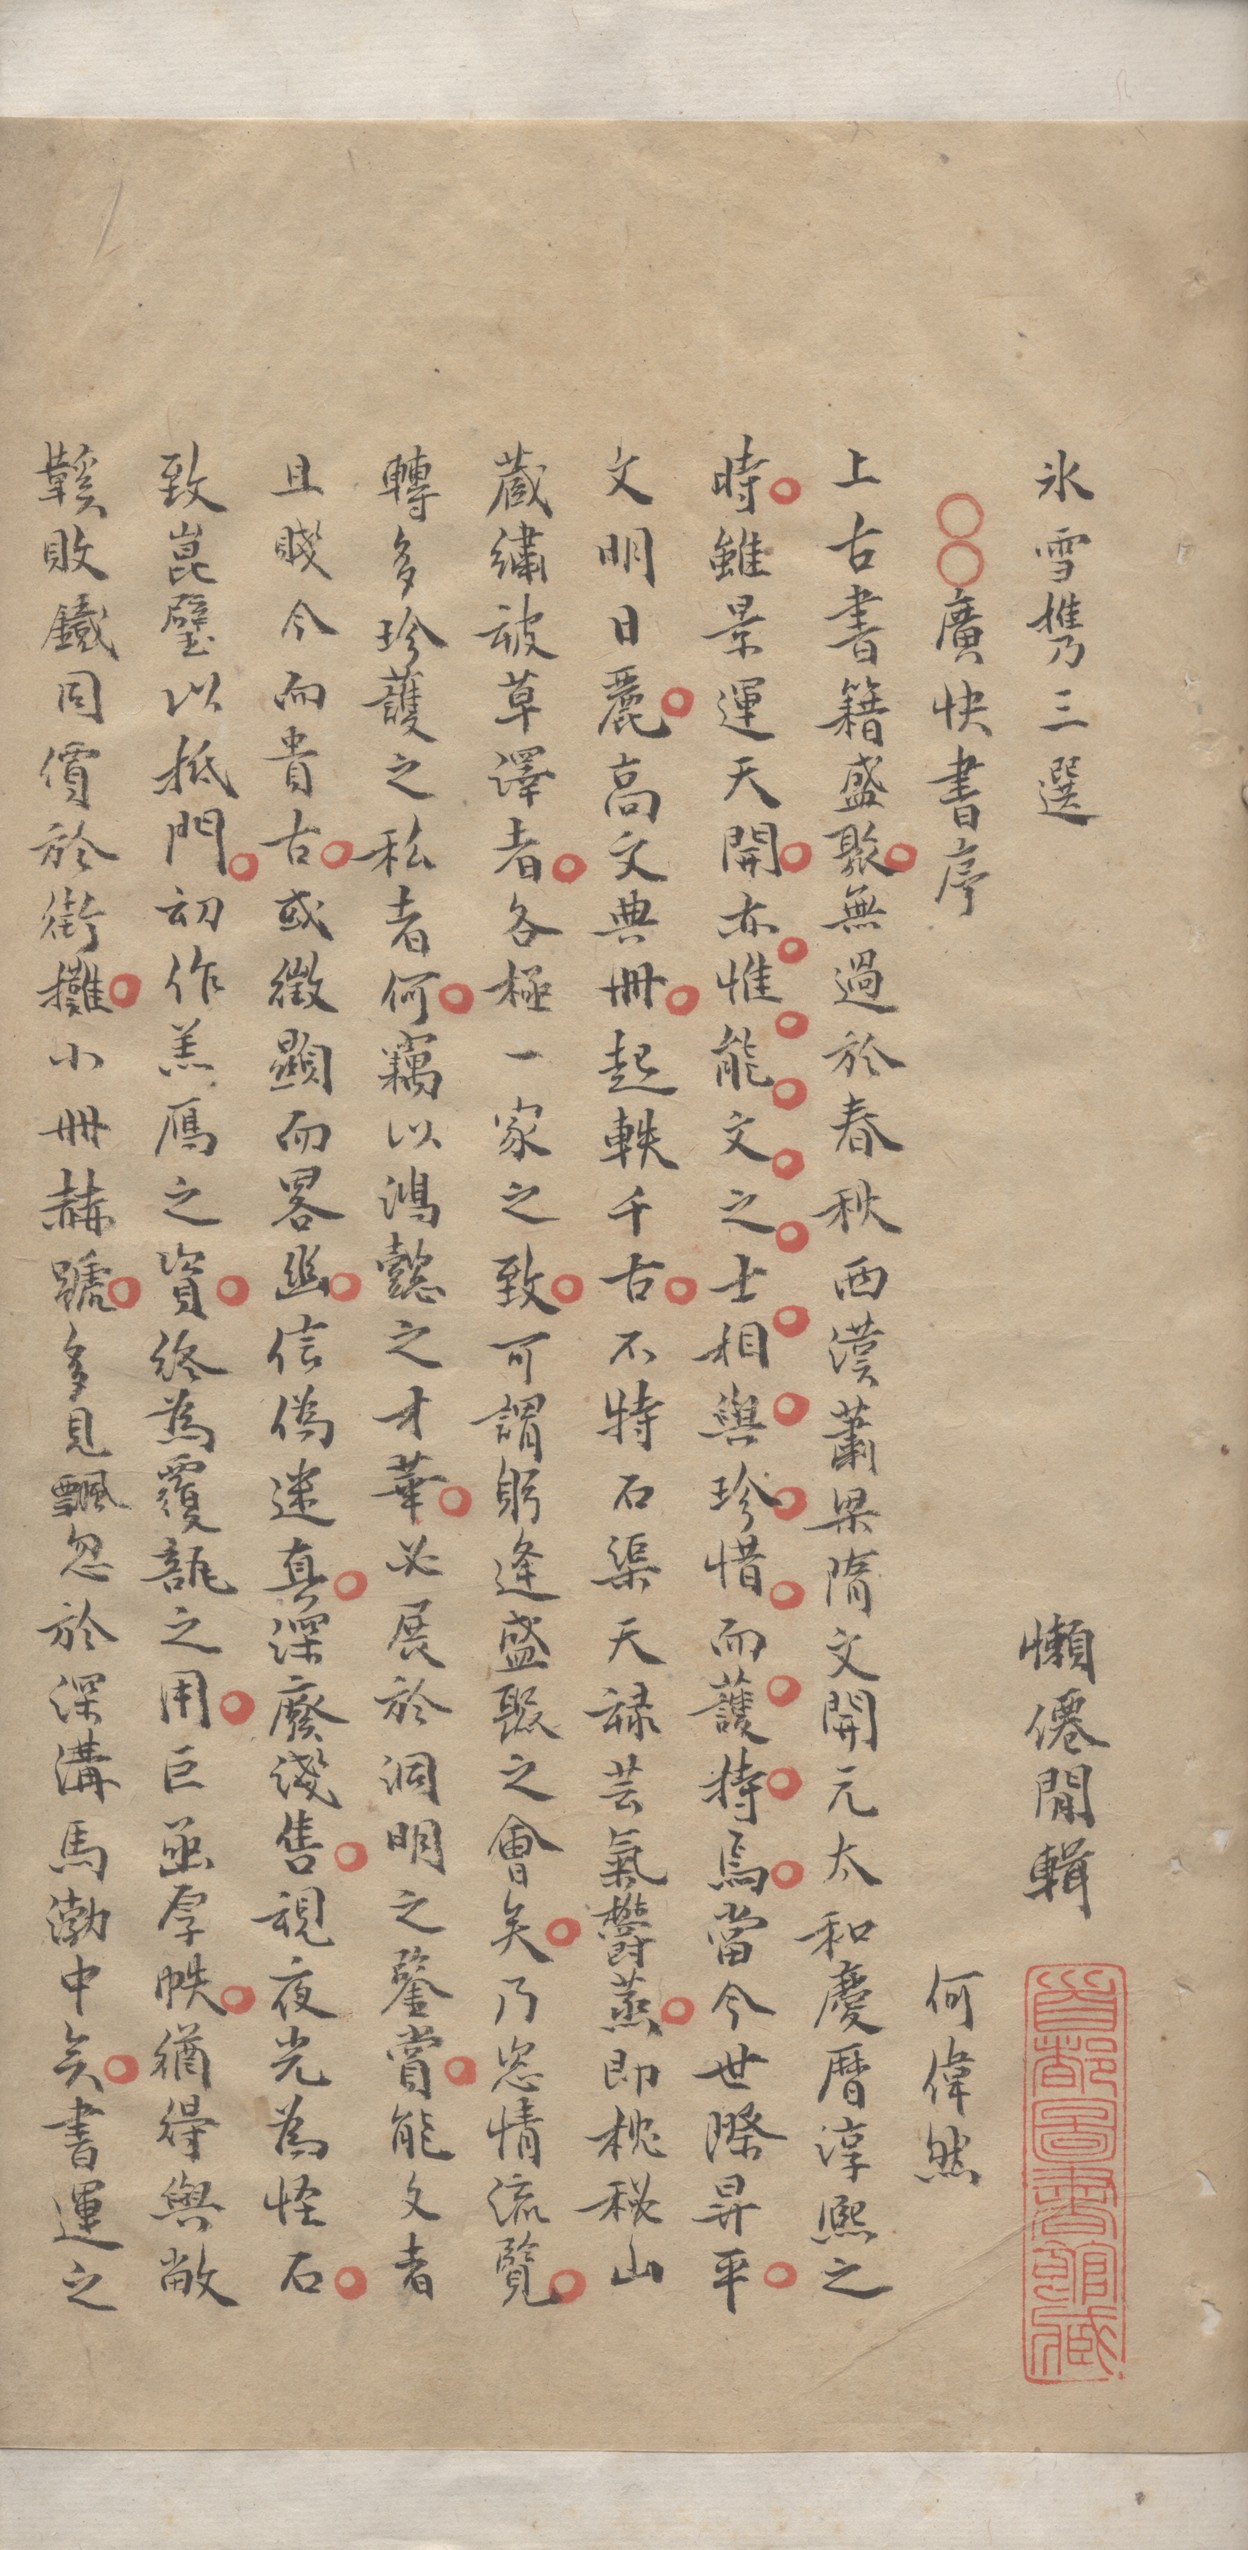 氷雪携三選
懶僊閒輯
首都圖書館藏
廣快書序
何偉然
上古書籍盛聚無過於春秋西漢蕭梁隋文開元太和慶曆淳熙之
時雖景運天開亦惟能文之士相與珍惜而護持焉當今世際昇平
文明日麗高文典冊起軼千古不特石渠天祿芸氣欎蒸即枕秘山
蔵繡被草澤者各極一家之致可謂躬逢盛聚之會矣乃恣情流覽
轉多珍護之私者何竊以鴻懿之才華必展於洞明之鑒賞能文者
且賤今而貴古或徵顯而畧幽信偽迷真深廢淺售視夜光為怪石
致崑璧以抵門初作羔鴈之資終為覆瓿之用巨函厚帙猶得與敝
鞵敗鐵同價於街攤小冊赫蹏多見飄忽於深溝馬渤中矣書運之